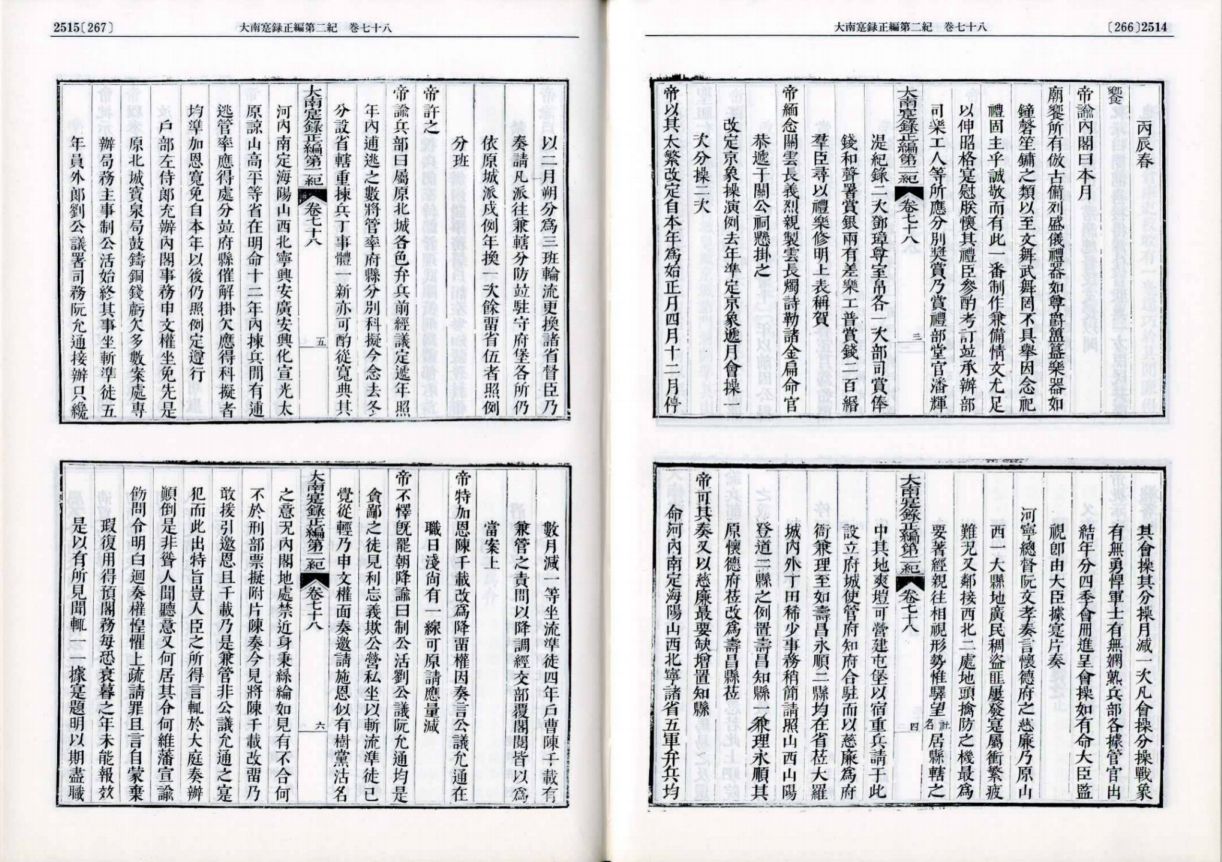 大南寔録正編第二紀　卷七十八
〔266〕2514
丙辰春
饗
帝諭內閣曰本月
廟饗所有倣古備列盛儀禮器如尊爵簠簋樂器如
鐘磬笙鏞之類以至文舞武舞罔不具舉因念祀
禮固主乎誠敬而有此一番制作兼備情文尤足
以伸昭格寔慰朕懷其禮臣參酌考訂竝承辦部
司樂工人等所應分別獎賞乃賞禮部堂官潘輝
大南寔錄正編第二紀　卷七十八　三
湜紀錄二次鄧璋尊室帛各一次部司賞俸
錢和聲署賞銀兩有差樂工普賞錢二百緡
羣臣尋以禮樂修明上表稱賀
帝緬念關雲長義烈親製雲長燭詩勒諸金扁命官
恭遞于關公祠懸掛之
改定京象操演例去年準定京象遞月會操一
次分操二次
帝以其太繁改定自本年爲始正月四月十二月停
其會操其分操月減一次凡會操分操戰象
有無勇悍軍士有無嫻熟兵部各據管官出
結年分四季會冊進呈會操如有命大臣監
視卽由大臣據寔片奏
河寧總督阮文孝奏言懷德府之慈廉乃原山
西一大縣地廣民稠盜匪屢發寔屬衝繁疲
難尤又鄰接西北二處地頭擒防之機最爲
要著經親往相視形勢惟驛望社名居縣轄之
大南寔錄正編第二紀　卷七十八　四
中其地爽塏可營建屯堡以宿重兵請于此
設立府城使管府知府合駐而以慈廉爲府
衙兼理至如壽昌永順二縣均在省莅大羅
城內外丁田稀少事務稍簡請照山西山陽
登道二縣之例置壽昌知縣一兼理永順其
原懷德府莅改爲壽昌縣莅
帝可其奏又以慈廉最要缺增置知縣
命河內南定海陽山西北寧諸省五軍弁兵均
2515〔267〕
大南寔録正編第二紀　卷七十八
以二月朔分爲三班輪流更換諸省督臣乃
奏請凡派往兼轄分防竝駐守府堡各所仍
依原城派戍例年換一次餘畱省伍者照例
分班
帝許之
帝諭兵部曰屬原北城各色弁兵前經議定遞年照
年內逋逃之數將管率府縣分別科擬今念去冬
分設省轄重揀兵丁事體一新亦可酌從寬典其
大南寔錄正編第二紀　卷七十八　五
河內南定海陽山西北寧興安廣安興化宣光太
原諒山高平等省在明命十二年內揀兵間有逋
逃管率應得處分竝府縣催解掛欠應得科擬者
均準加恩寬免自本年以後仍照例定遵行
戶部左侍郞充辦內閣事務申文權坐免先是
原北城寶泉局鼓鑄銅錢虧欠多數案處專
辦局務主事制公活始終其事坐斬準徒五
年員外郞劉公議署司務阮允通接辦只纔
數月減一等坐流準徒四年戶曹陳千載有
兼管之責問以降調經交部覆閣閱皆以爲
當案上
帝特加恩陳千載改爲降畱權因奏言公議允通在
職日淺尚有一線可原請應量減
帝不懌旣罷朝降諭曰制公活劉公議阮允通均是
貪鄙之徒見利忘義欺公營私坐以斬流準徒已
覺從輕乃申文權面奏邀請施恩似有樹黨沽名
大南寔錄正編第二紀　卷七十八　六
之意况內閣地處禁近身秉絲綸如見有不合何
不於刑部票擬附片陳奏今見將陳千載改畱乃
敢援引邀恩且千載乃是兼管非公議允通之寔
犯而此出特旨豈人臣之所得言輒於大庭奏辦
顚倒是非聳人聞聽意又何居其令何維藩宣諭
飭問令明白迴奏權惶懼上疏請罪且言自蒙棄
瑕復用得預閣務每恐衰暮之年未能報效
是以有所見聞輒一一據寔題明以期盡職